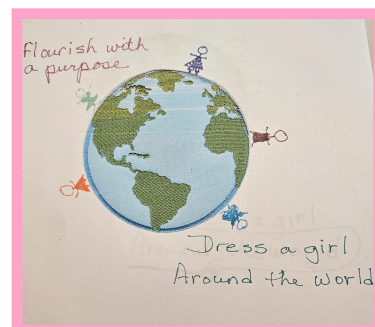 Flourish with
a purpose
Dress a girl
Around the world